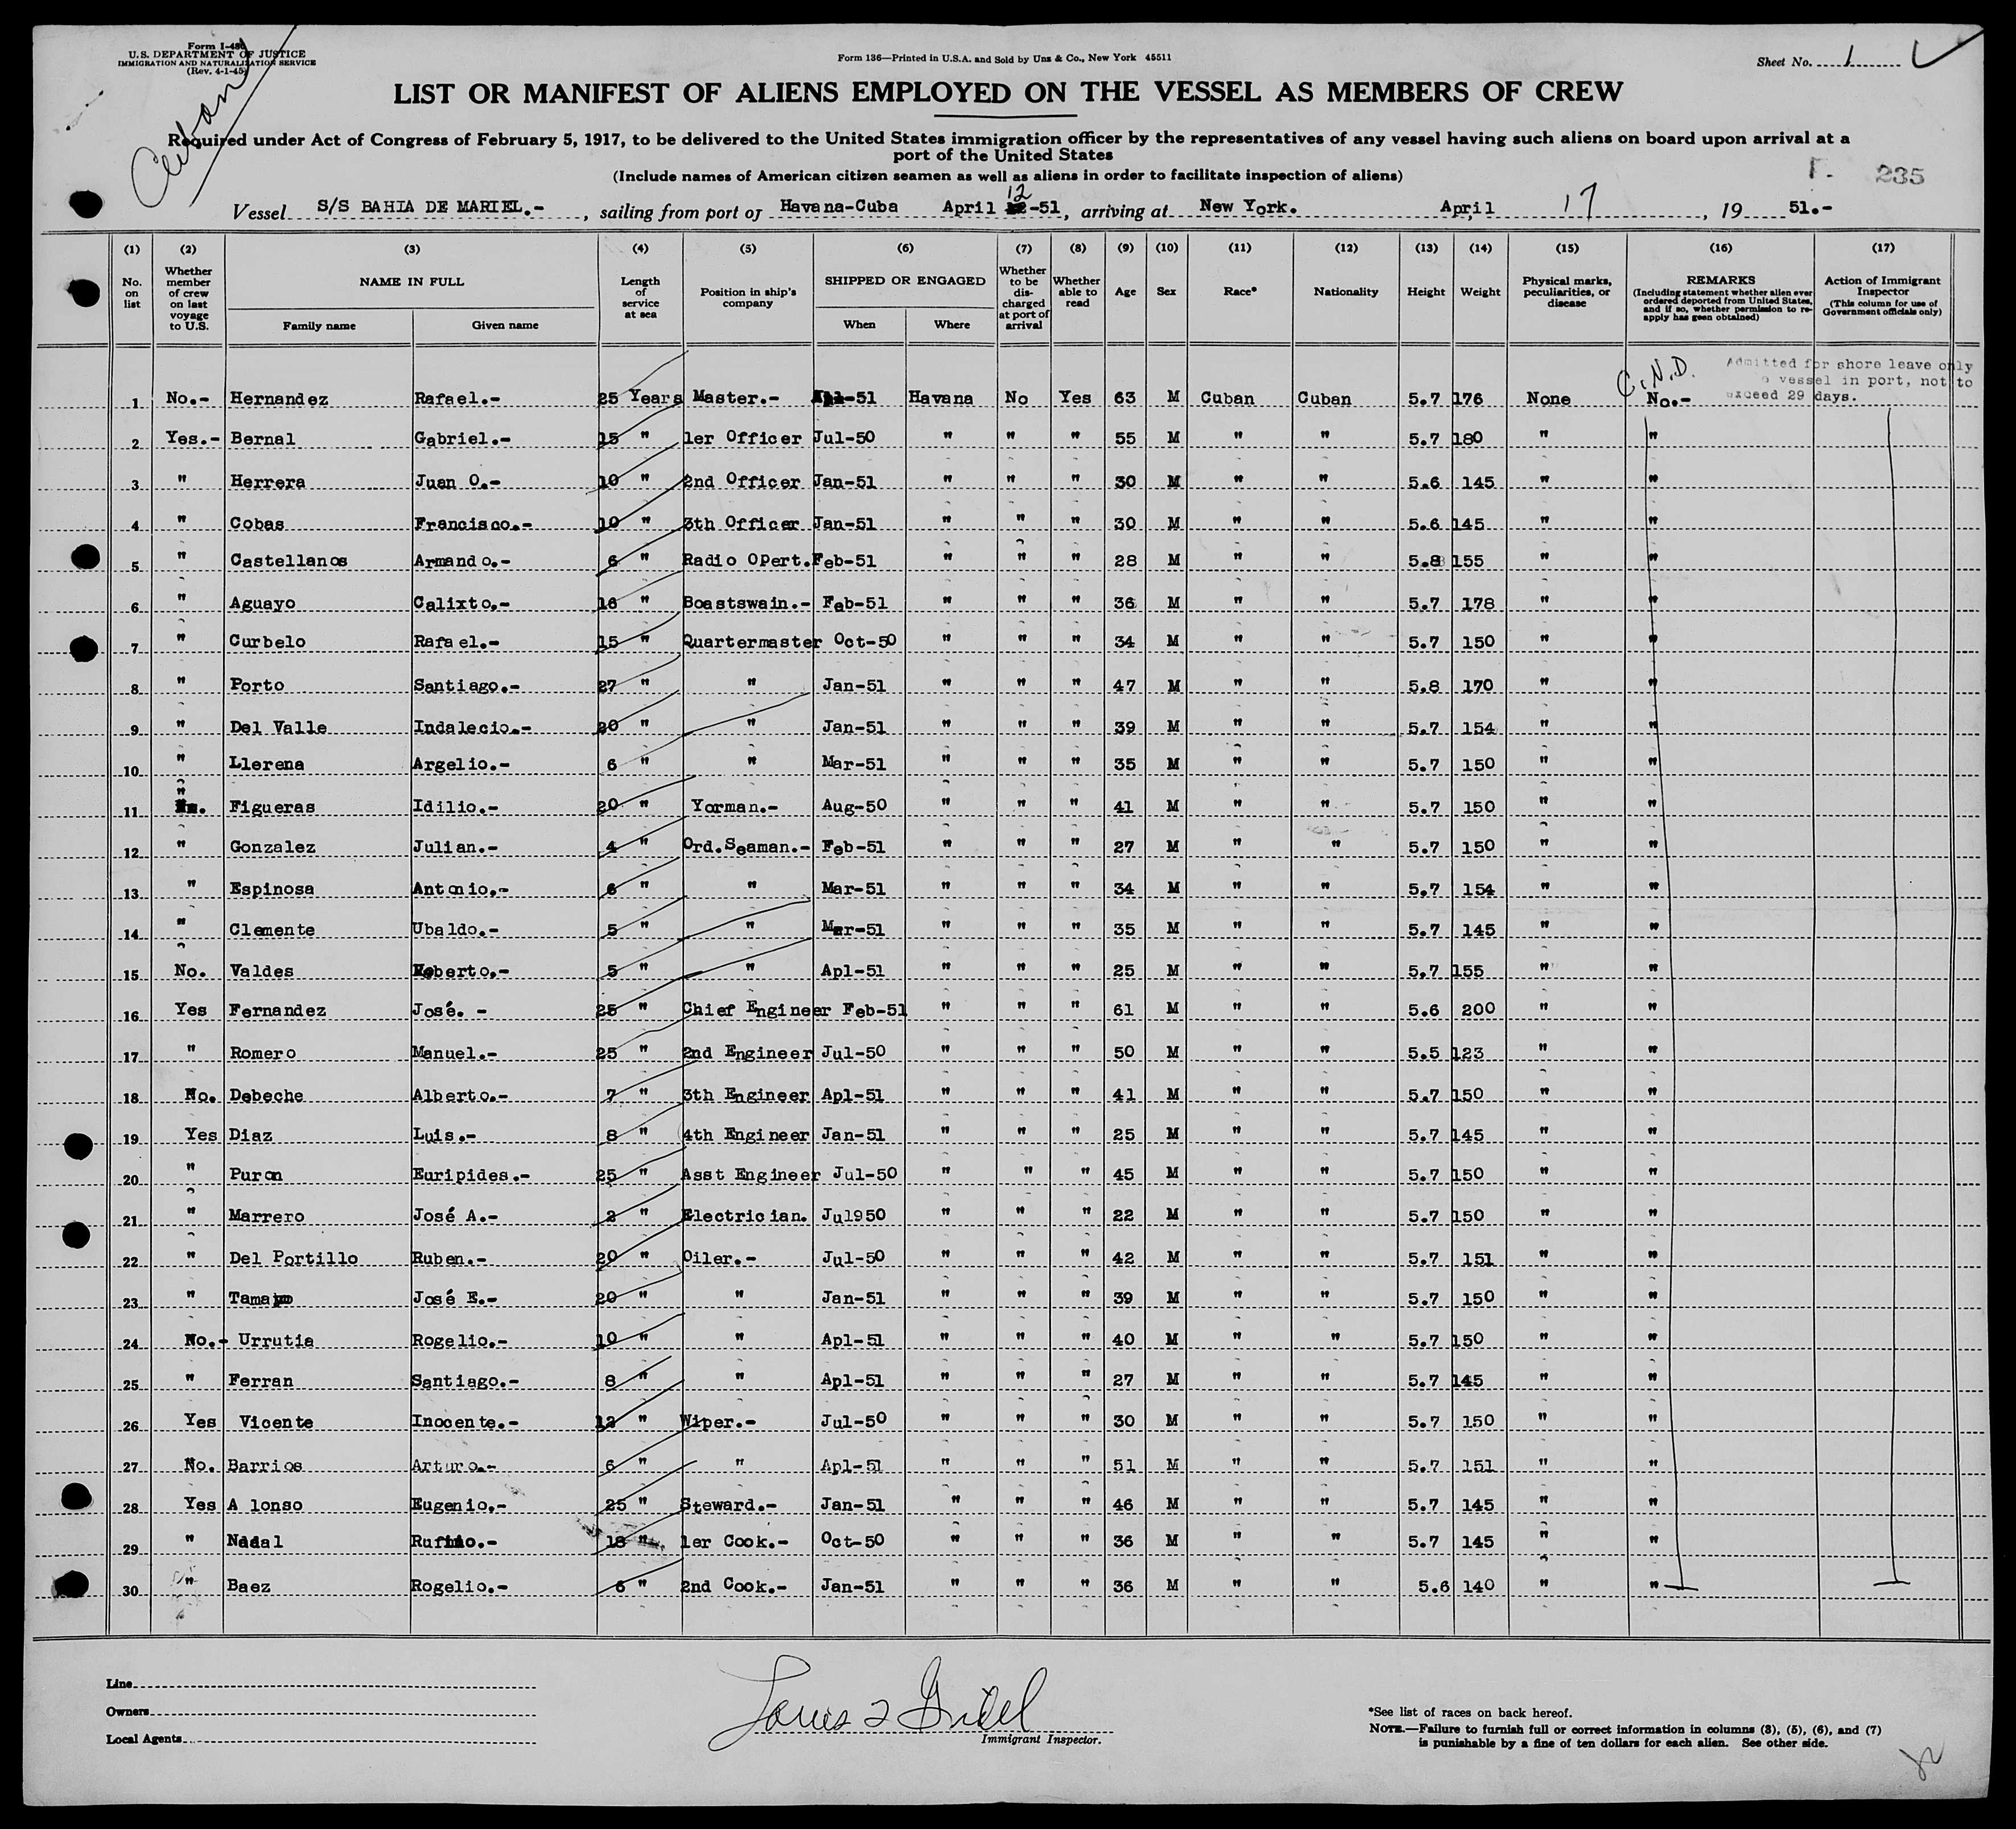 Form I-480
U.S. DEPARTMENT OF JUSTICE
IMMIGRATION AND NATURALIZATION SERVICE
(Rev. 4-1-45)
Cuban
Form 136—Printed in U.S.A. and Sold by Unz & Co., New York 45511
Sheet No. 1
LIST OR MANIFEST OF ALIENS EMPLOYED ON THE VESSEL AS MEMBERS OF CREW
Required under Act of Congress of February 5, 1917, to be delivered to the United States immigration officer by the representatives of any vessel having such aliens on board upon arrival at a
port of the United States
(Include names of American citizen seamen as well as aliens in order to facilitate inspection of aliens)
235
Vessel S/S BAHIA DE MARIEL.- , sailing from port of Havana-Cuba April 12 -51, arriving at New York. April 17 , 19 51.-
(1) (2) (3) (4) (5) (6) (7) (8) (9) (10) (11) (12) (13) (14) (15) (16) (17)
No. on list Whether member of crew on last voyage to U.S. NAME IN FULL Family name Given name Length of service at sea Position in ship's company SHIPPED OR ENGAGED When Where Whether to be discharged at port of arrival Whether able to read Age Sex Race* Nationality Height Weight Physical marks, peculiarities, or disease REMARKS (Including statement whether alien ever ordered deported from United States, and if so, whether permission to re-apply has geen obtained) Action of Immigrant Inspector (This column for use of Government officials only)
C.N.D. Admitted for shore leave only
vessel in port, not to
exceed 29 days.
1 No.- Hernandez Rafael.- 25 Years Master.- -51 Havana No Yes 63 M Cuban Cuban 5.7 176 None No.-
2 Yes.- Bernal Gabriel.- 15 " 1er Officer Jul-50 " " " 55 M " " 5.7 180 " "
3 " Herrera Juan O.- 10 " 2nd Officer Jan-51 " " " 30 M " " 5.6 145 " "
4 " Cobas Francisco.- 10 " 3th Officer Jan-51 " " " 30 M " " 5.6 145 " "
5 " Castellanos Armando.- 6 " Radio OPert. Feb-51 " " " 28 M " " 5.8 155 " "
6 " Aguayo Calixto.- 16 " Boastswain.- Feb-51 " " " 36 M " " 5.7 178 " "
7 " Curbelo Rafael.- 15 " Quartermaster Oct-50 " " " 34 M " " 5.7 150 " "
8 " Porto Santiago.- 27 " " Jan-51 " " " 47 M " " 5.8 170 " "
9 " Del Valle Indalecio.- 20 " " Jan-51 " " " 39 M " " 5.7 154 " "
10 " Llerena Argelio.- 6 " " Mar-51 " " " 35 M " " 5.7 150 " "
11 " Figueras Idilio.- 20 " Yorman.- Aug-50 " " " 41 M " " 5.7 150 " "
12 " Gonzalez Julian.- 4 " Ord.Seaman.- Feb-51 " " " 27 M " " 5.7 150 " "
13 " Espinosa Antonio.- 6 " " Mar-51 " " " 34 M " " 5.7 154 " "
14 " Clemente Ubaldo.- 5 " " Mar-51 " " " 35 M " " 5.7 145 " "
15 No. Valdes Roberto.- 5 " " Apl-51 " " " 25 M " " 5.7 155 " "
16 Yes Fernandez José. - 25 " Chief Engineer Feb-51 " " " 61 M " " 5.6 200 " "
17 " Romero Manuel.- 25 " 2nd Engineer Jul-50 " " " 50 M " " 5.5 123 " "
18 No. Debeche Alberto.- 7 " 3th Engineer Apl-51 " " " 41 M " " 5.7 150 " "
19 Yes Diaz Luis.- 8 " 4th Engineer Jan-51 " " " 25 M " " 5.7 145 " "
20 " Puron Euripides.- 25 " Asst Engineer Jul-50 " " " 45 M " " 5.7 150 " "
21 " Marrero José A.- 2 " Electrician. Jul950 " " " 22 M " " 5.7 150 " "
22 " Del Portillo Ruben.- 20 " Oiler.- Jul-50 " " " 42 M " " 5.7 151 " "
23 " Tamayo José E.- 20 " " Jan-51 " " " 39 M " " 5.7 150 " "
24 No.- Urrutia Rogelio.- 10 " " Apl-51 " " " 40 M " " 5.7 150 " "
25 " Ferran Santiago.- 8 " " Apl-51 " " " 27 M " " 5.7 145 " "
26 Yes Vicente Inocente.- 12 " Wiper.- Jul-50 " " " 30 M " " 5.7 150 " "
27 No. Barrios Arturo.- 6 " " Apl-51 " " " 51 M " " 5.7 151 " "
28 Yes A lonso Eugenio.- 25 " Steward.- Jan-51 " " " 46 M " " 5.7 145 " "
29 " Nadal Rufino.- 18 " 1er Cook.- Oct-50 " " " 36 M " " 5.7 145 " "
30 " Baez Rogelio.- 6 " 2nd Cook.- Jan-51 " " " 36 M " " 5.6 140 " "
Line
Owners
Local Agents
Immigrant Inspector.
*See list of races on back hereof.
NOTE.—Failure to furnish full or correct information in columns (3), (5), (6), and (7)
is punishable by a fine of ten dollars for each alien. See other side.